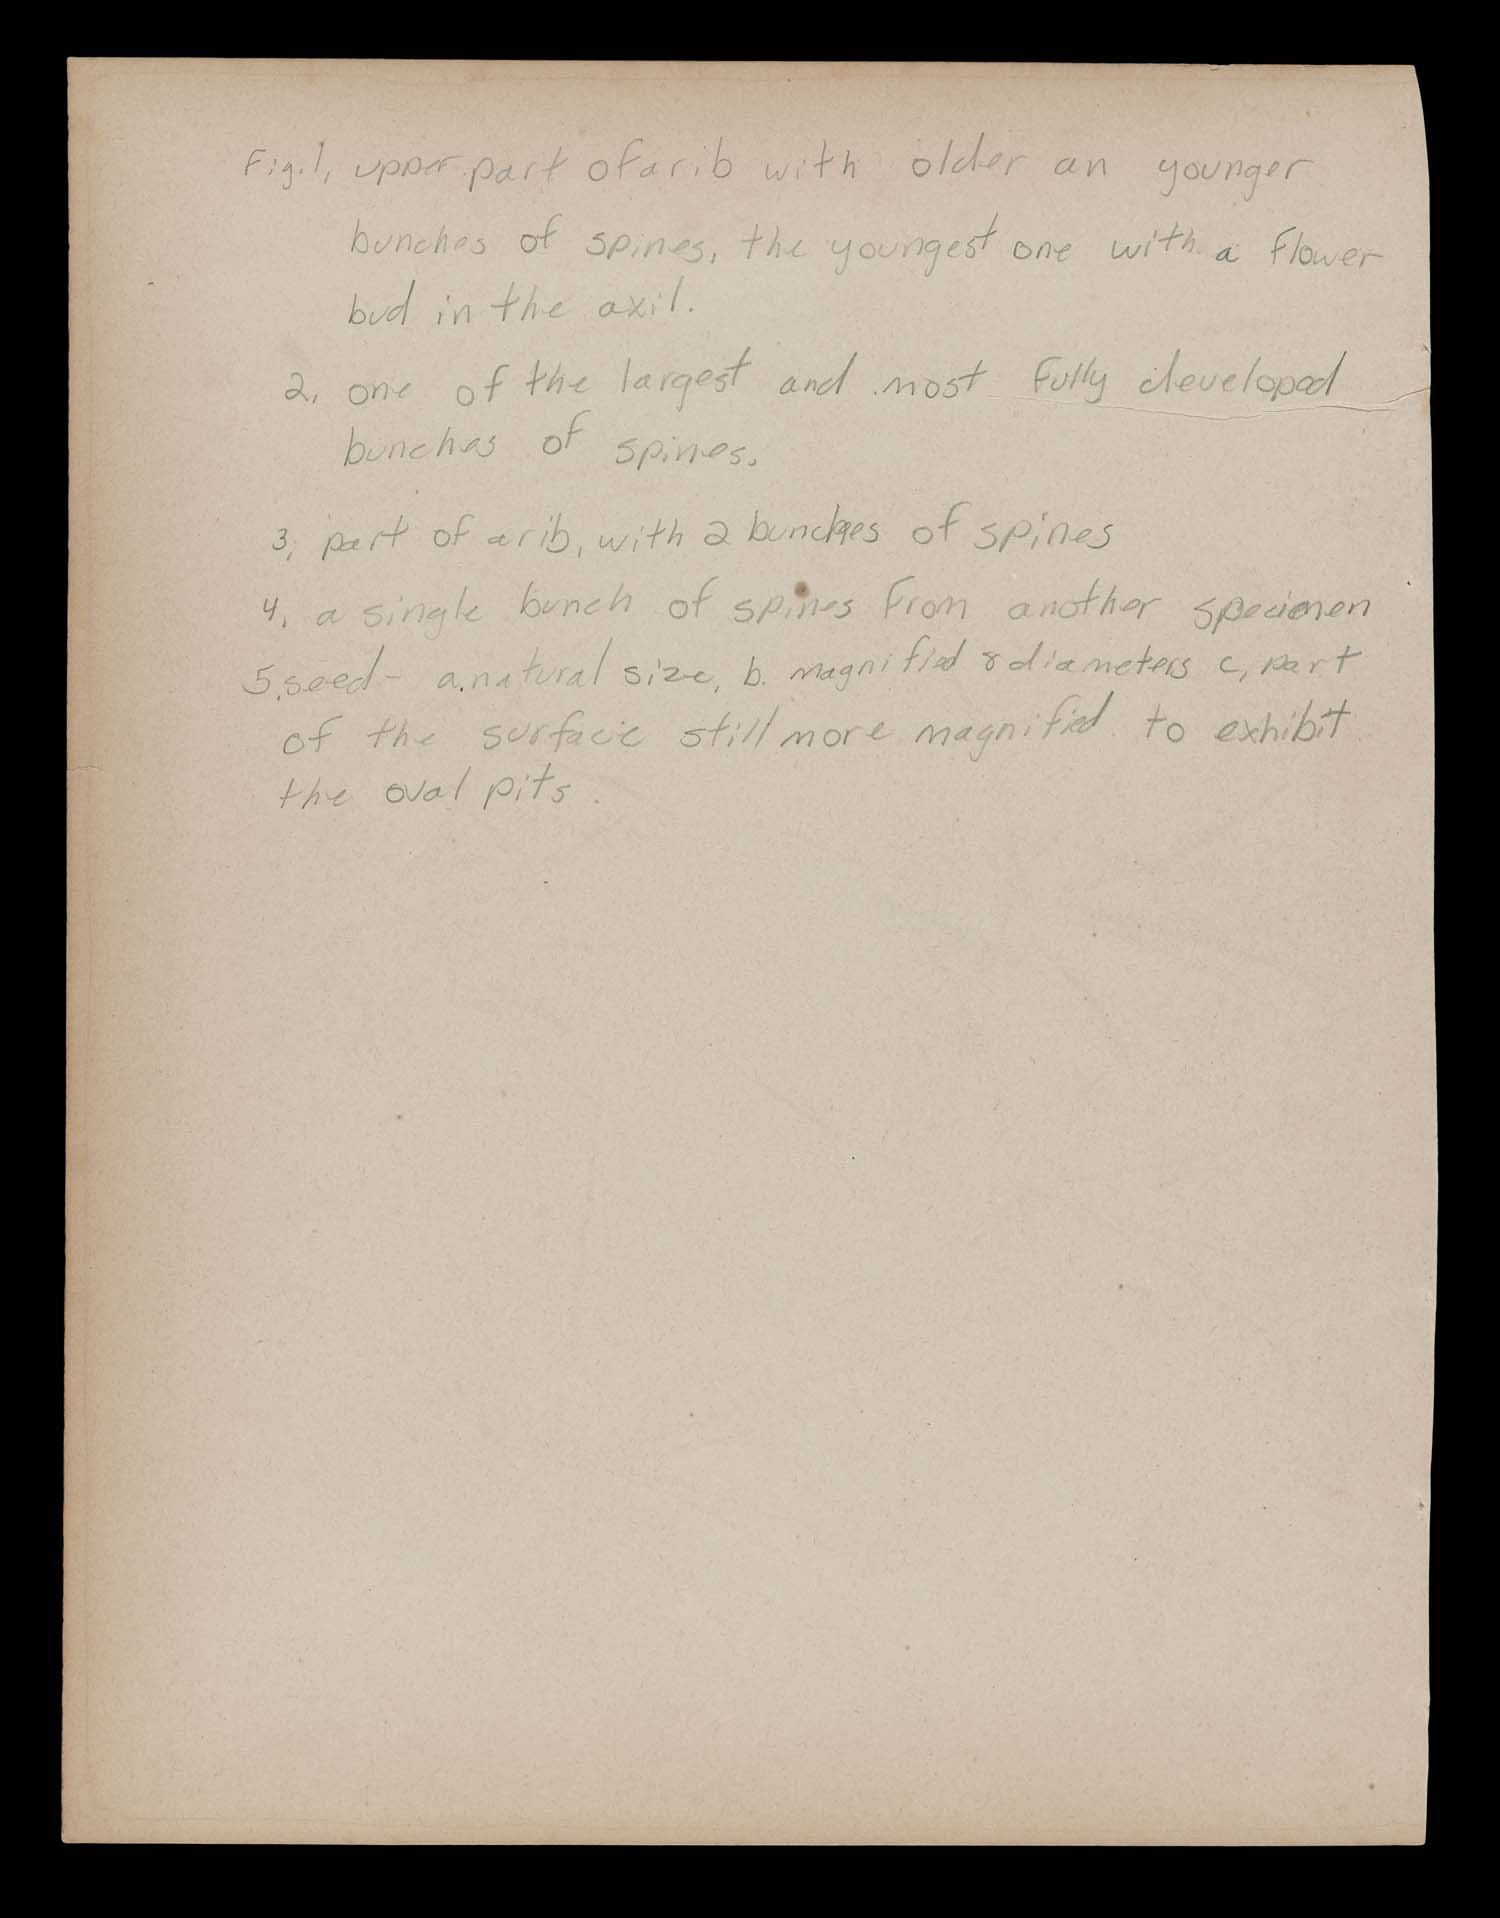 Fig. 1, upper part of a rib with older an younger
bunches of spines, the youngest one with a flower
bud in the axil.
2, one of the largest and most fully developed
bunches of spines.
3, part of a rib, with 2 bunches of spines
4, a single bunch of spines from another specimen
5. seed - a. natural size, b. magnified 8 diameters c, part
of the surface still more magnified to exhibit
the oval pits.